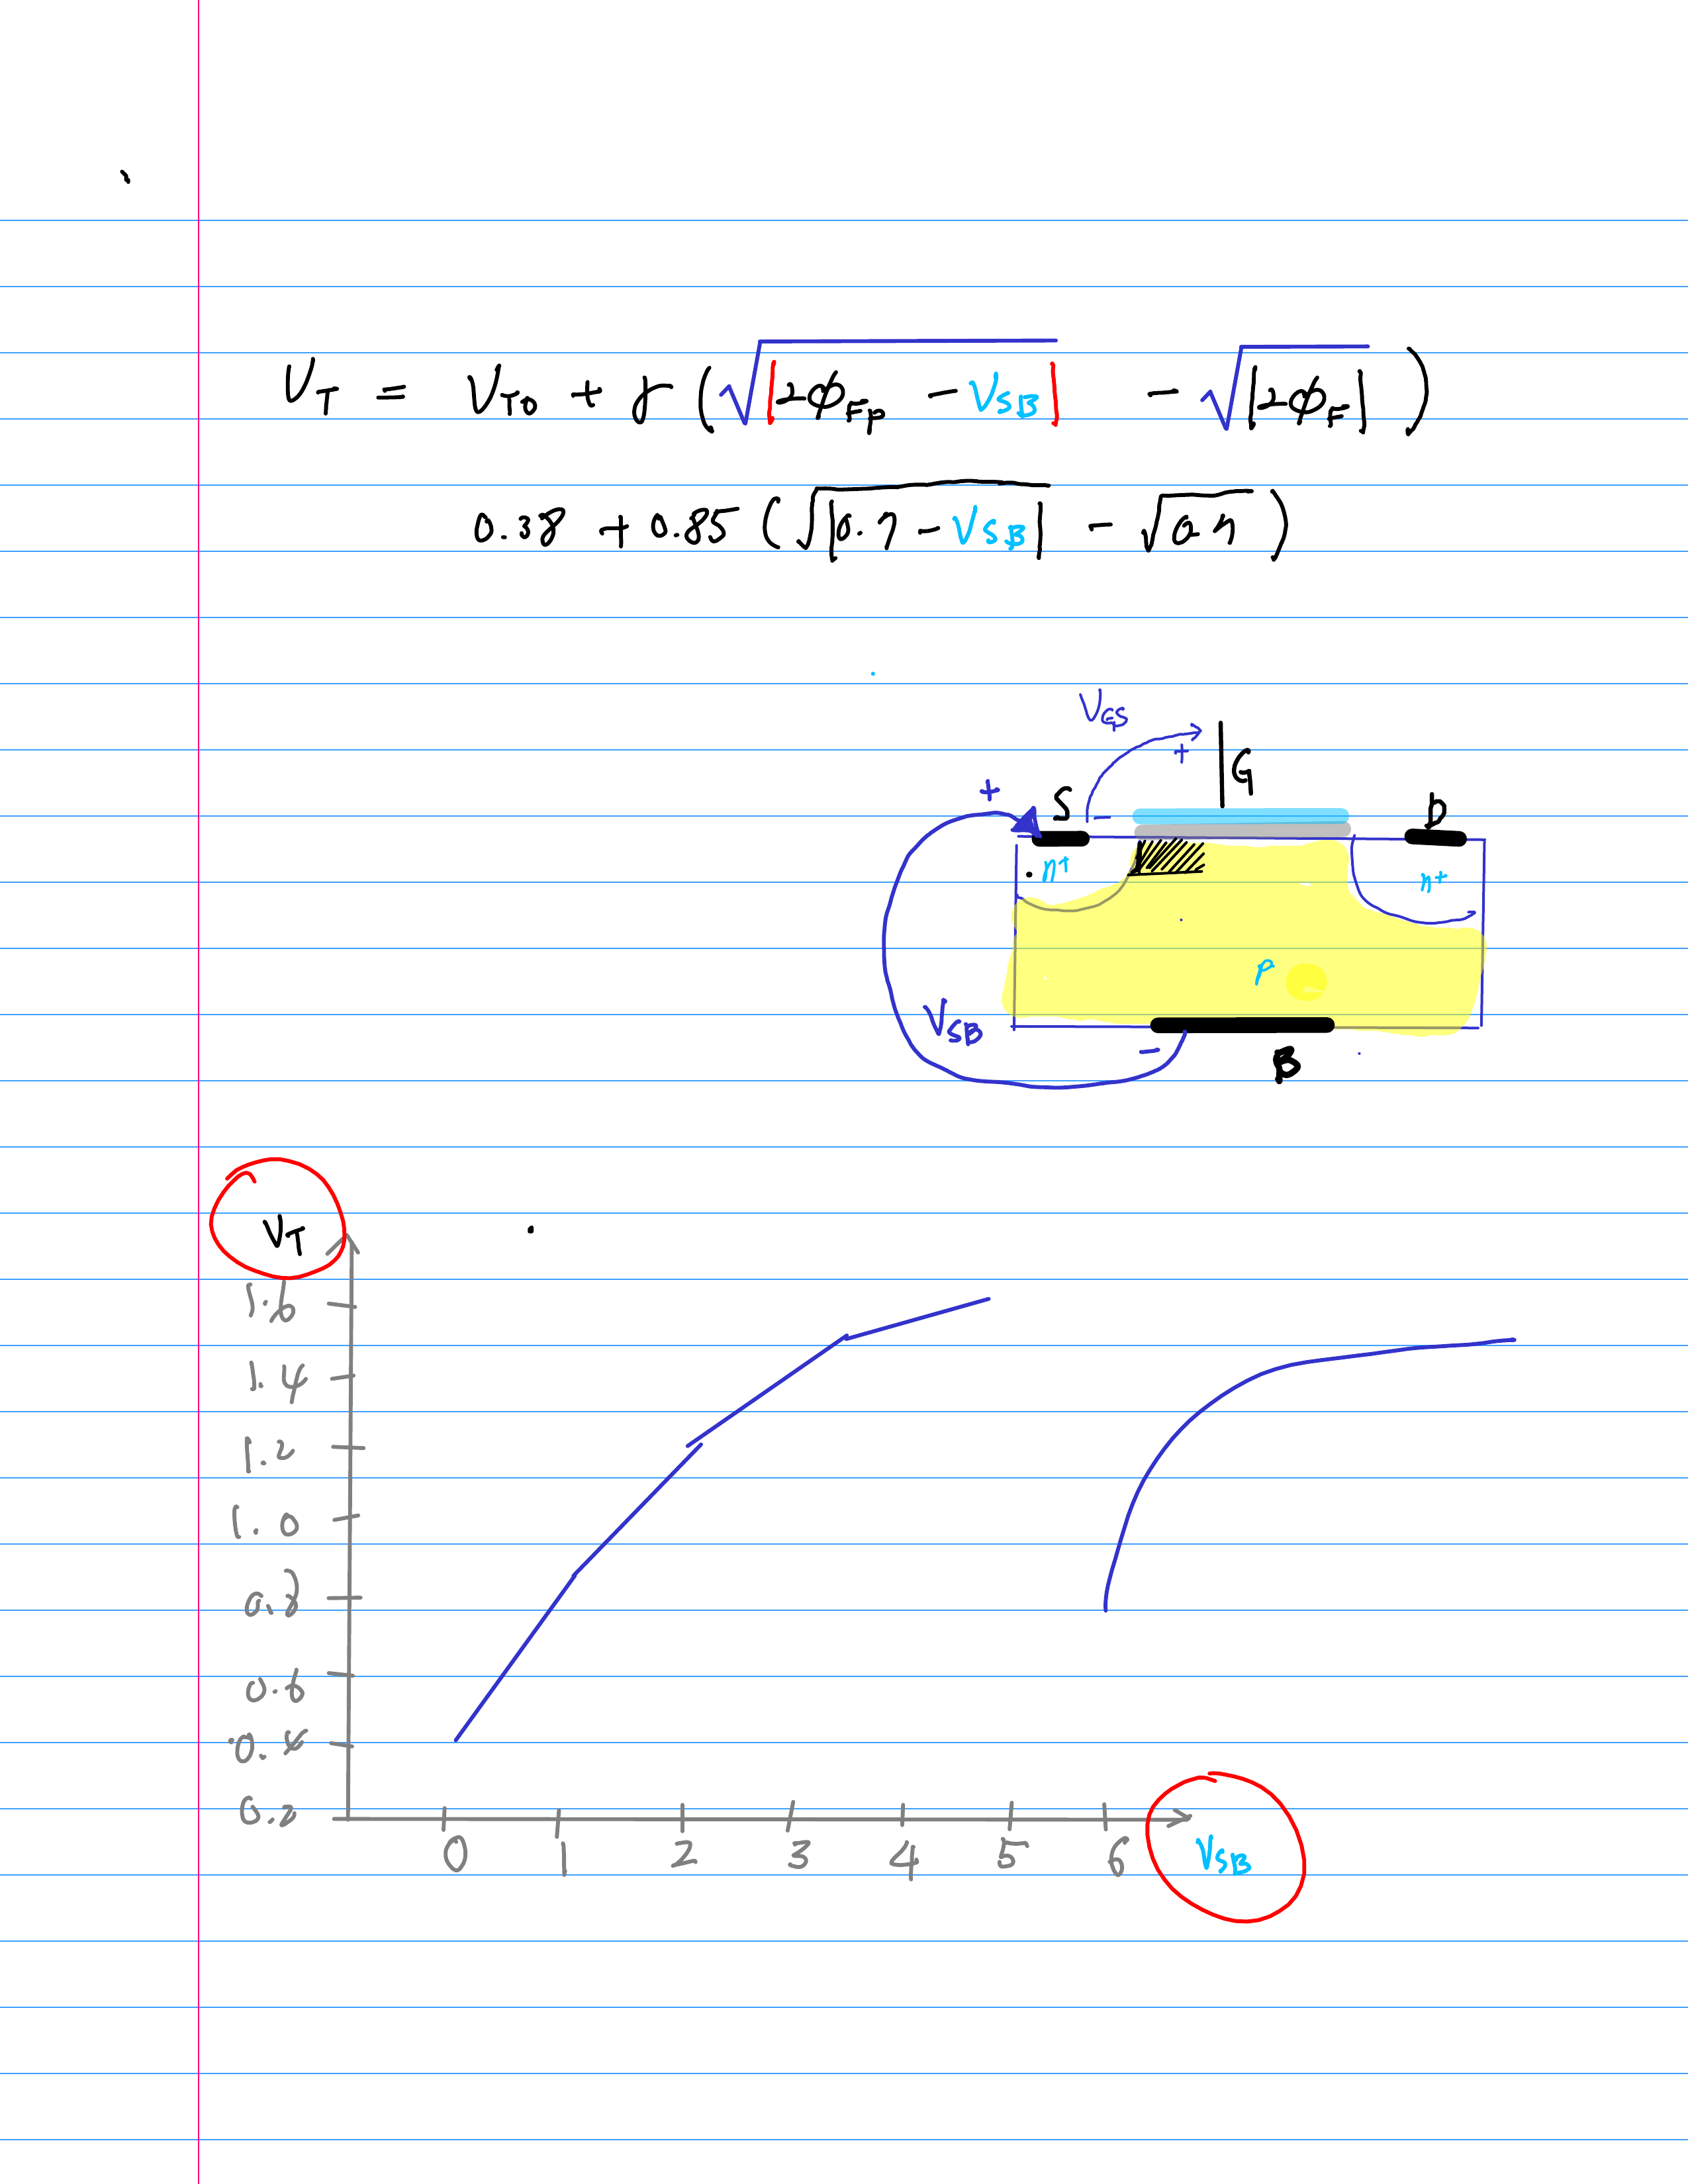 V_T = V_T0 + γ (√|2φ_Fp - V_SB| - √|2φ_F|)
0.38 + 0.85 (√|0.7 - V_SB| - √0.7)
V_GS
+
G
+
S
-
D
n+
n+
p
V_SB
-
B
V_T
1.6
1.4
1.2
1.0
0.8
0.6
0.4
0.2
0 1 2 3 4 5 6 V_SB